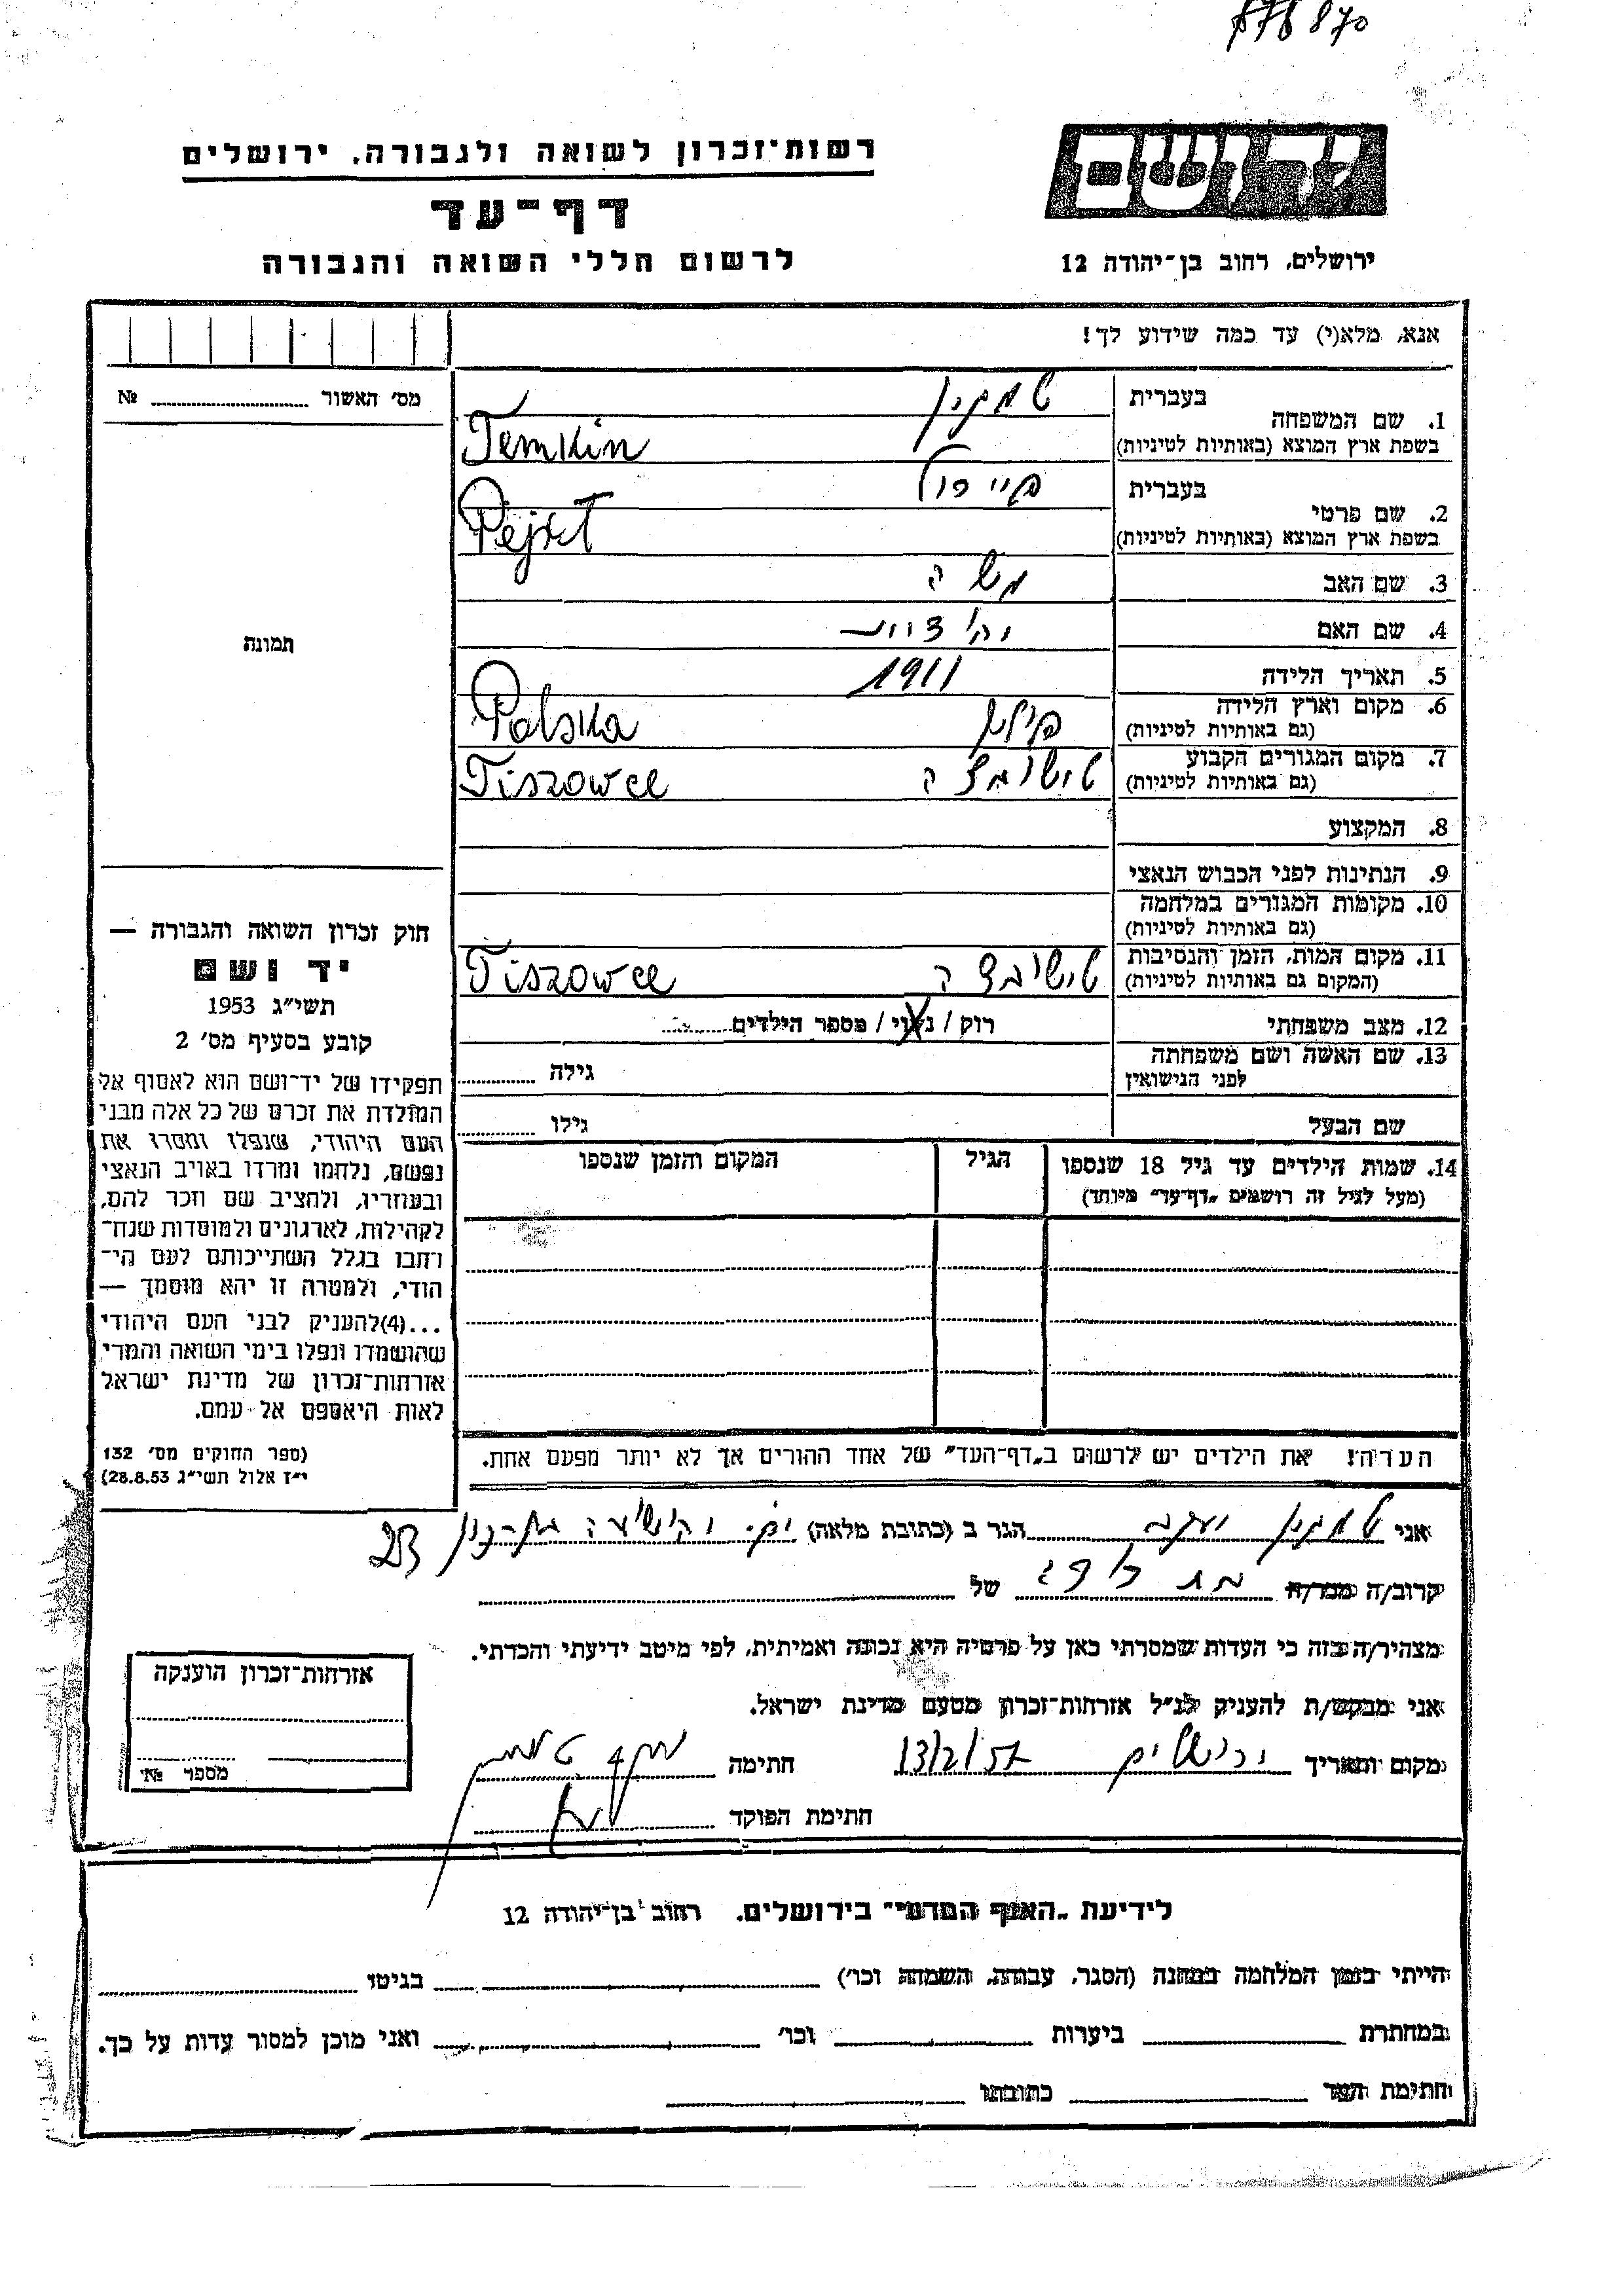 רשות־זכרון לשואה ולגבורה, ירושלים
דף־עד
לרשום חללי השואה והגבורה
ידושם
ירושלים, רחוב בן־יהודה 12
אנא, מלא(י) עד כמה שידוע לך!
מס׳ האשור № 
1. שם המשפחה
בעברית טמקין
בשפת ארץ המוצא (באותיות לטיניות) Temkin
2. שם פרטי
בעברית
בשפת ארץ המוצא (באותיות לטיניות)
3. שם האב משה
4. שם האם
5. תאריך הלידה 1911
6. מקום וארץ הלידה
(גם באותיות לטיניות) פולין Polska
7. מקום המגורים הקבוע
(גם באותיות לטיניות) טישובצה Tiszowce
8. המקצוע
9. הנתינות לפני הכבוש הנאצי
10. מקומות המגורים במלחמה
(גם באותיות לטיניות)
11. מקום המות, הזמן והנסיבות
(המקום גם באותיות לטיניות) טישובצה Tiszowce
12. מצב משפחתי רוק / נשוי / מספר הילדים
13. שם האשה ושם משפחתה
לפני הנישואין גילה
שם הבעל גילו
14. שמות הילדים עד גיל 18 שנספו הגיל המקום והזמן שנספו
(מעל לגיל זה רושמים „דף־עד״ מיוחד)
הערה! את הילדים יש לרשום ב„דף־העד״ של אחד ההורים אך לא יותר מפעם אחת.
תמונה
חוק זכרון השואה והגבורה —
יד ושם
תשי״ג 1953
קובע בסעיף מס׳ 2
תפקידו של יד־ושם הוא לאסוף אל
המולדת את זכרם של כל אלה מבני
העם היהודי, שנפלו ומסרו את
נפשם, נלחמו ומרדו באויב הנאצי
ובעוזריו, ולהציב שם וזכר להם,
לקהילות, לארגונים ולמוסדות שנח־
רחבו בגלל השתייכותם לעם הי־
הודי, ולמטרה זו יהא מוסמך —
...(4)להעניק לבני העם היהודי
שהושמדו ונפלו בימי השואה והמרי
אזרחות־זכרון של מדינת ישראל
לאות היאספם אל עמם.
(ספר החוקים מס׳ 132
י״ז אלול תשי״ג 28.8.53)
אני טמקין יעקב הגר ב (כתובת מלאה) 23
קרוב/ה מכר/ה של
מצהיר/ה בזה כי העדות שמסרתי כאן על פרטיה היא נכונה ואמיתית, לפי מיטב ידיעתי והכרתי.
אני מבקש/ת להעניק לנ״ל אזרחות־זכרון מטעם מדינת ישראל.
מקום ותאריך ירושלים 13/2/57 חתימה
חתימת הפוקד
אזרחות־זכרון הוענקה
מספר №
לידיעת „האגף המדעי״ בירושלים, רחוב בן־יהודה 12
הייתי בזמן המלחמה במחנה (הסגר, עבודה, השמדה וכו׳) בגיטו
במחתרת ביערות וכו׳ ואני מוכן למסור עדות על כך.
חתימת העד כתובתו